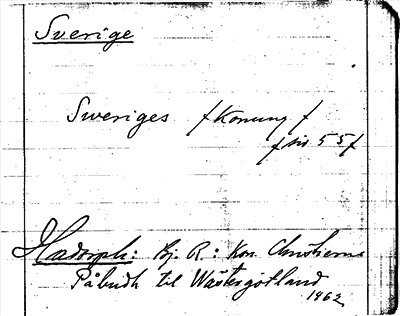 Sverige
Sweriges /Konung/
/sid. 55/
Hadorph: Bj. R.: Kon. Christierns
Påbudh til Wästergötland
1962